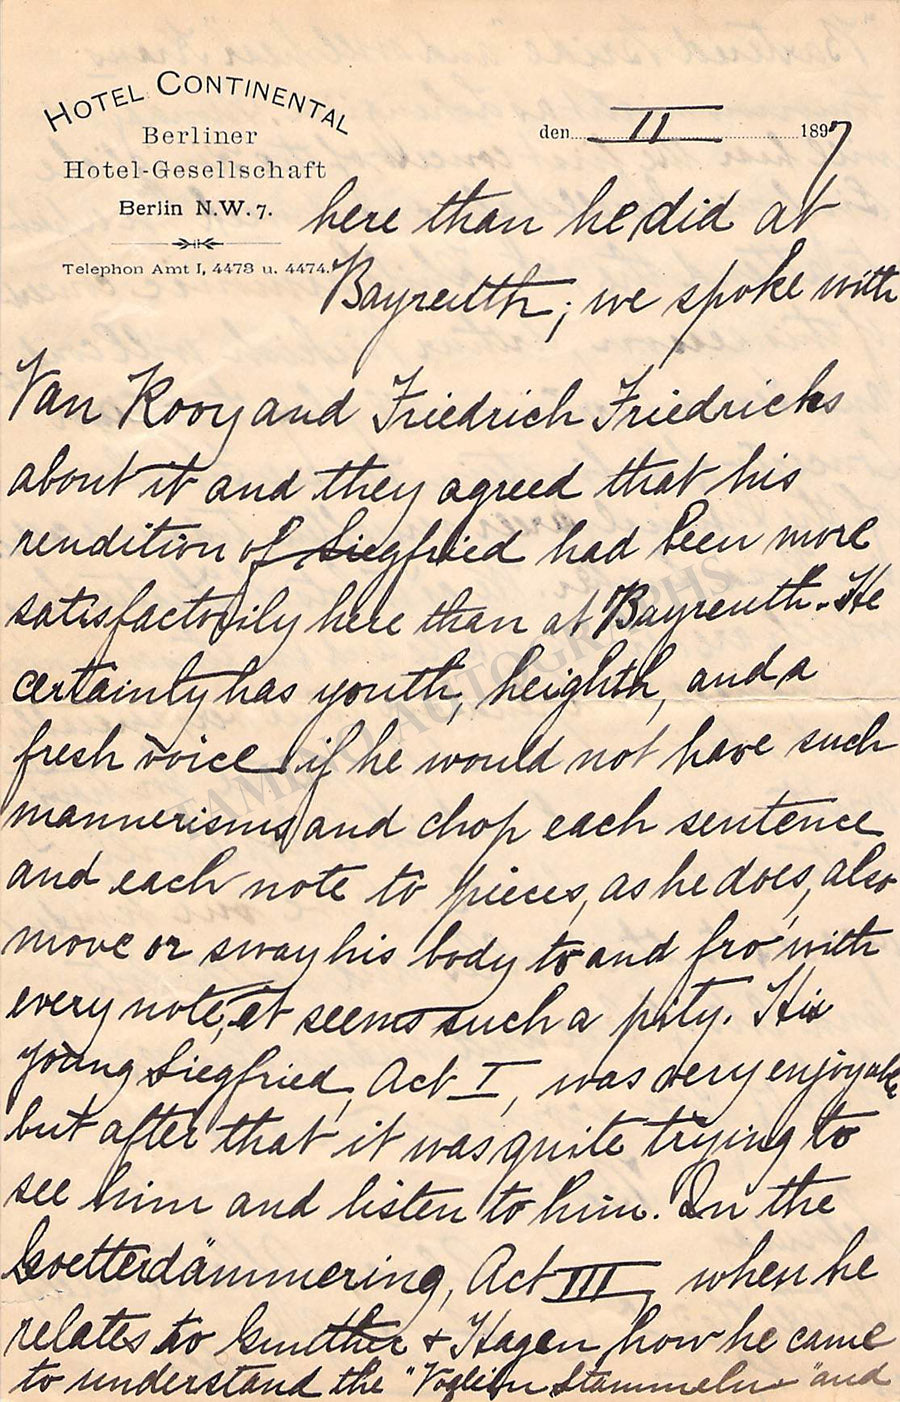 HOTEL CONTINENTAL
Berliner
Hotel-Gesellschaft
Berlin N.W. 7.
Telephon Amt I, 4473 u. 4474.
den II 1897
here than he did at
Bayreuth; we spoke with
Van Rooy and Friedrich Friedrichs
about it and they agreed that his
rendition of Siegfried had been more
satisfactorily here than at Bayreuth. He
certainly has youth, heighth, and a
fresh voice if he would not have such
mannerisms and chop each sentence
and each note to pieces, as he does, also
move or sway his body to and fro with
every note, it seems such a pity. His
young Siegfried, Act I, was very enjoyable
but after that it was quite trying to
see him and listen to him. In the
Goetterdämmering, Act III, when he
relates to Gunther + Hagen how he came
to understand the "Voglein Stammeln" and
TAMINO AUTOGRAPHS